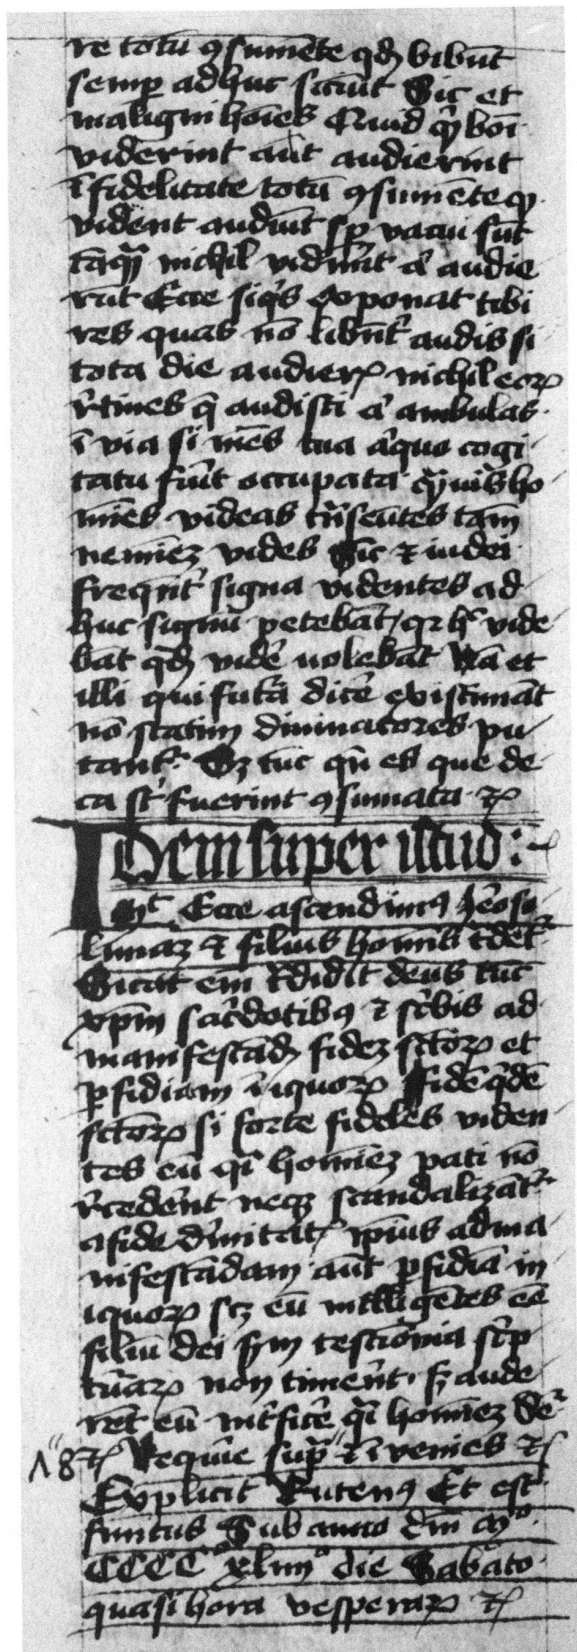 re totū ꝯsumēte qḋ bibūt
semꝑ adhuc sitiūt Sic et
maligni hoīes Quid qͥ boni
viderint aut̄ audierint
ī fidelitate totū ꝯsumēte qͥ
vident audiūt sꝑ vacui sūt
tāqͣꝫ nichil vid̓nt a͛ audie
rūt Ecce siqͥs exponat tibi
res quas nō libent̓ audis si
tota die audierꝭ nichil eoꝝ
r̓tines q̄ audisti a͛ ambulas
ī via si mēs tua aͥquo cogi
tatu fuīt occupata qͣꝫuis ho
mīes videas tn̄seūtes tam̄
nemīeꝫ vides Sic ⁊ iudei
freqn̄t̓ signa videntes ad
huc signū petebāt qꝛ hͨ vide
bāt qḋ vidē nolebāt Nā et
illi qui fut̓a dicē existimāt
nō statim diuinatores pu
tant̓ Sꝫ tūc qn̄ ea que de
ca st̓ fuerint ꝯsumata ⁊ꝭ
IDem super istud :
Mͭ Ecce ascendimꝰ Jeroso
limaꝫ ⁊ filius homīs t̓det̓
Sicut em̄ t̓didit deus tūc
xp̄m sac̓dotibꝰ ⁊ sc̓bis ad
manifestādā fideꝫ sctoꝝ et
ꝑfidiam īiquoꝝ fidē qͥdē
sctoꝝ si forte fideles viden
tes eū qͥ homīeꝫ pati nō
r̓cedent neqꝫ scandalizāt̓
a fide diuītatꝭ ip̄ius ad ma
nifestādam aut̄ ꝑfidiā in
iquoꝝ scꝫ eū intelligētes eē
filiū dei ꝑ testiōnia sc̓p
turaꝝ non timeˉt sꝫ aude
rēt eū int̓ficē qͥ homīeꝫ
⁊ꝭ Require supͣ ⁊ īvenies ⁊ꝭ
Explicit Rutenꝰ Et est
finitus Sub anno dn̄i Mͦ
CCCCͦ xliiiͦ die Sabato
quasi hora vesperaꝝ ⁊ꝭ